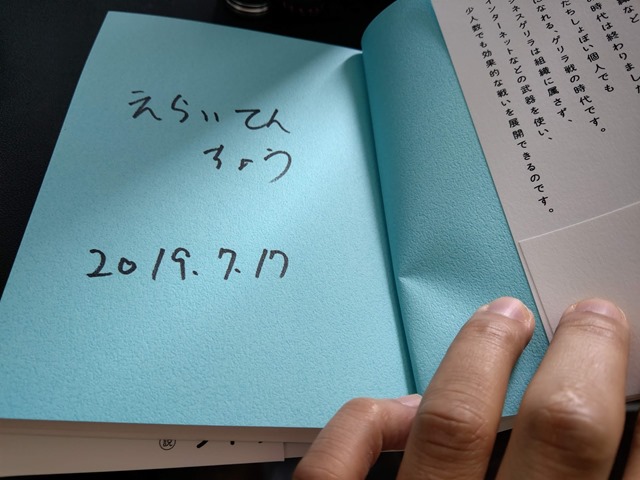 えらいてん
ちょう
2019.7.17
時代は終わりました
たちしょぼい個人でも
になれる、ゲリラ戦の時代です。
ジネスゲリラは組織に属さず、
インターネットなどの武器を使い、
少人数でも効果的な戦いを展開できるのです。